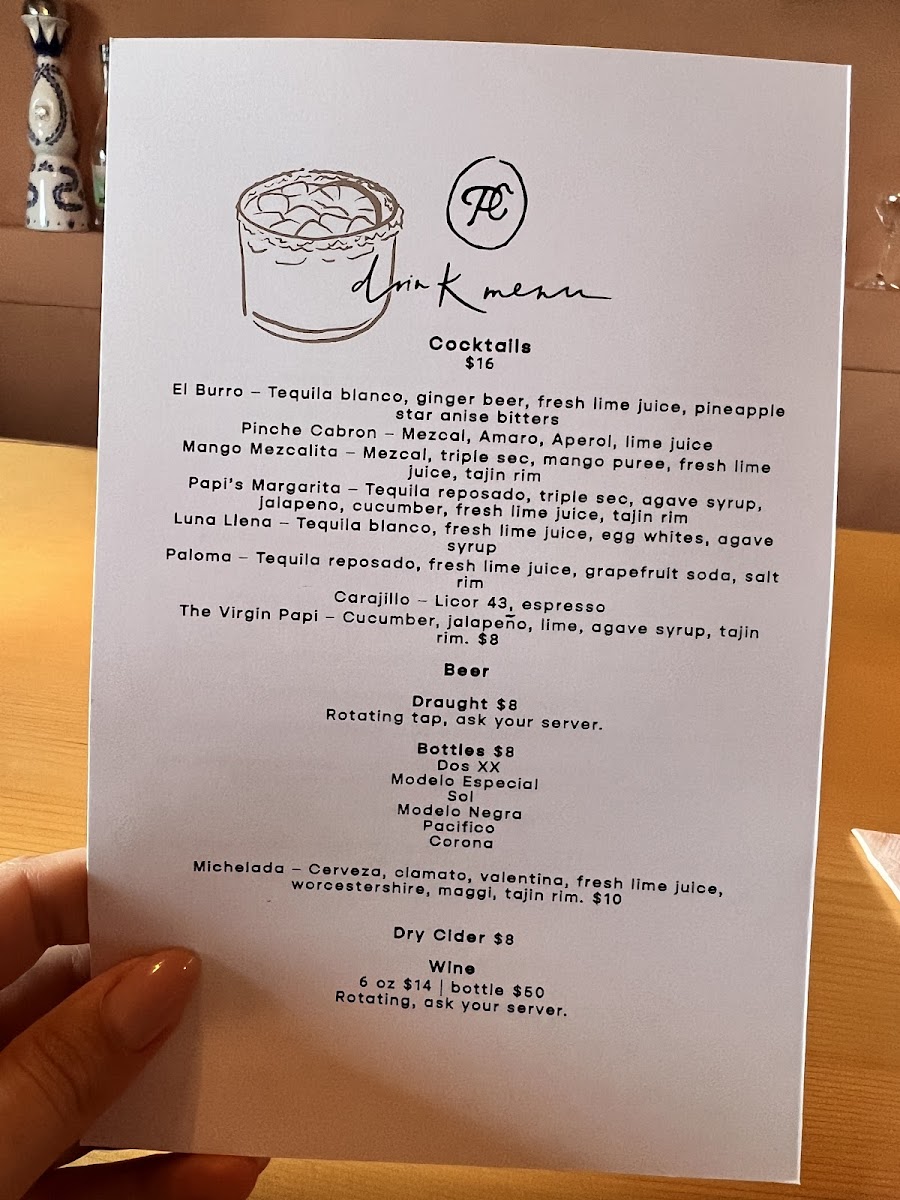 PC
drink menu
Cocktails
$16
El Burro – Tequila blanco, ginger beer, fresh lime juice, pineapple
star anise bitters
Pinche Cabron – Mezcal, Amaro, Aperol, lime juice
Mango Mezcalita – Mezcal, triple sec, mango puree, fresh lime
juice, tajin rim
Papi's Margarita – Tequila reposado, triple sec, agave syrup,
jalapeno, cucumber, fresh lime juice, tajin rim
Luna Llena – Tequila blanco, fresh lime juice, egg whites, agave
syrup
Paloma – Tequila reposado, fresh lime juice, grapefruit soda, salt
rim
Carajillo – Licor 43, espresso
The Virgin Papi – Cucumber, jalapeño, lime, agave syrup, tajin
rim. $8
Beer
Draught $8
Rotating tap, ask your server.
Bottles $8
Dos XX
Modelo Especial
Sol
Modelo Negra
Pacifico
Corona
Michelada – Cerveza, clamato, valentina, fresh lime juice,
worcestershire, maggi, tajin rim. $10
Dry Cider $8
Wine
6 oz $14 | bottle $50
Rotating, ask your server.